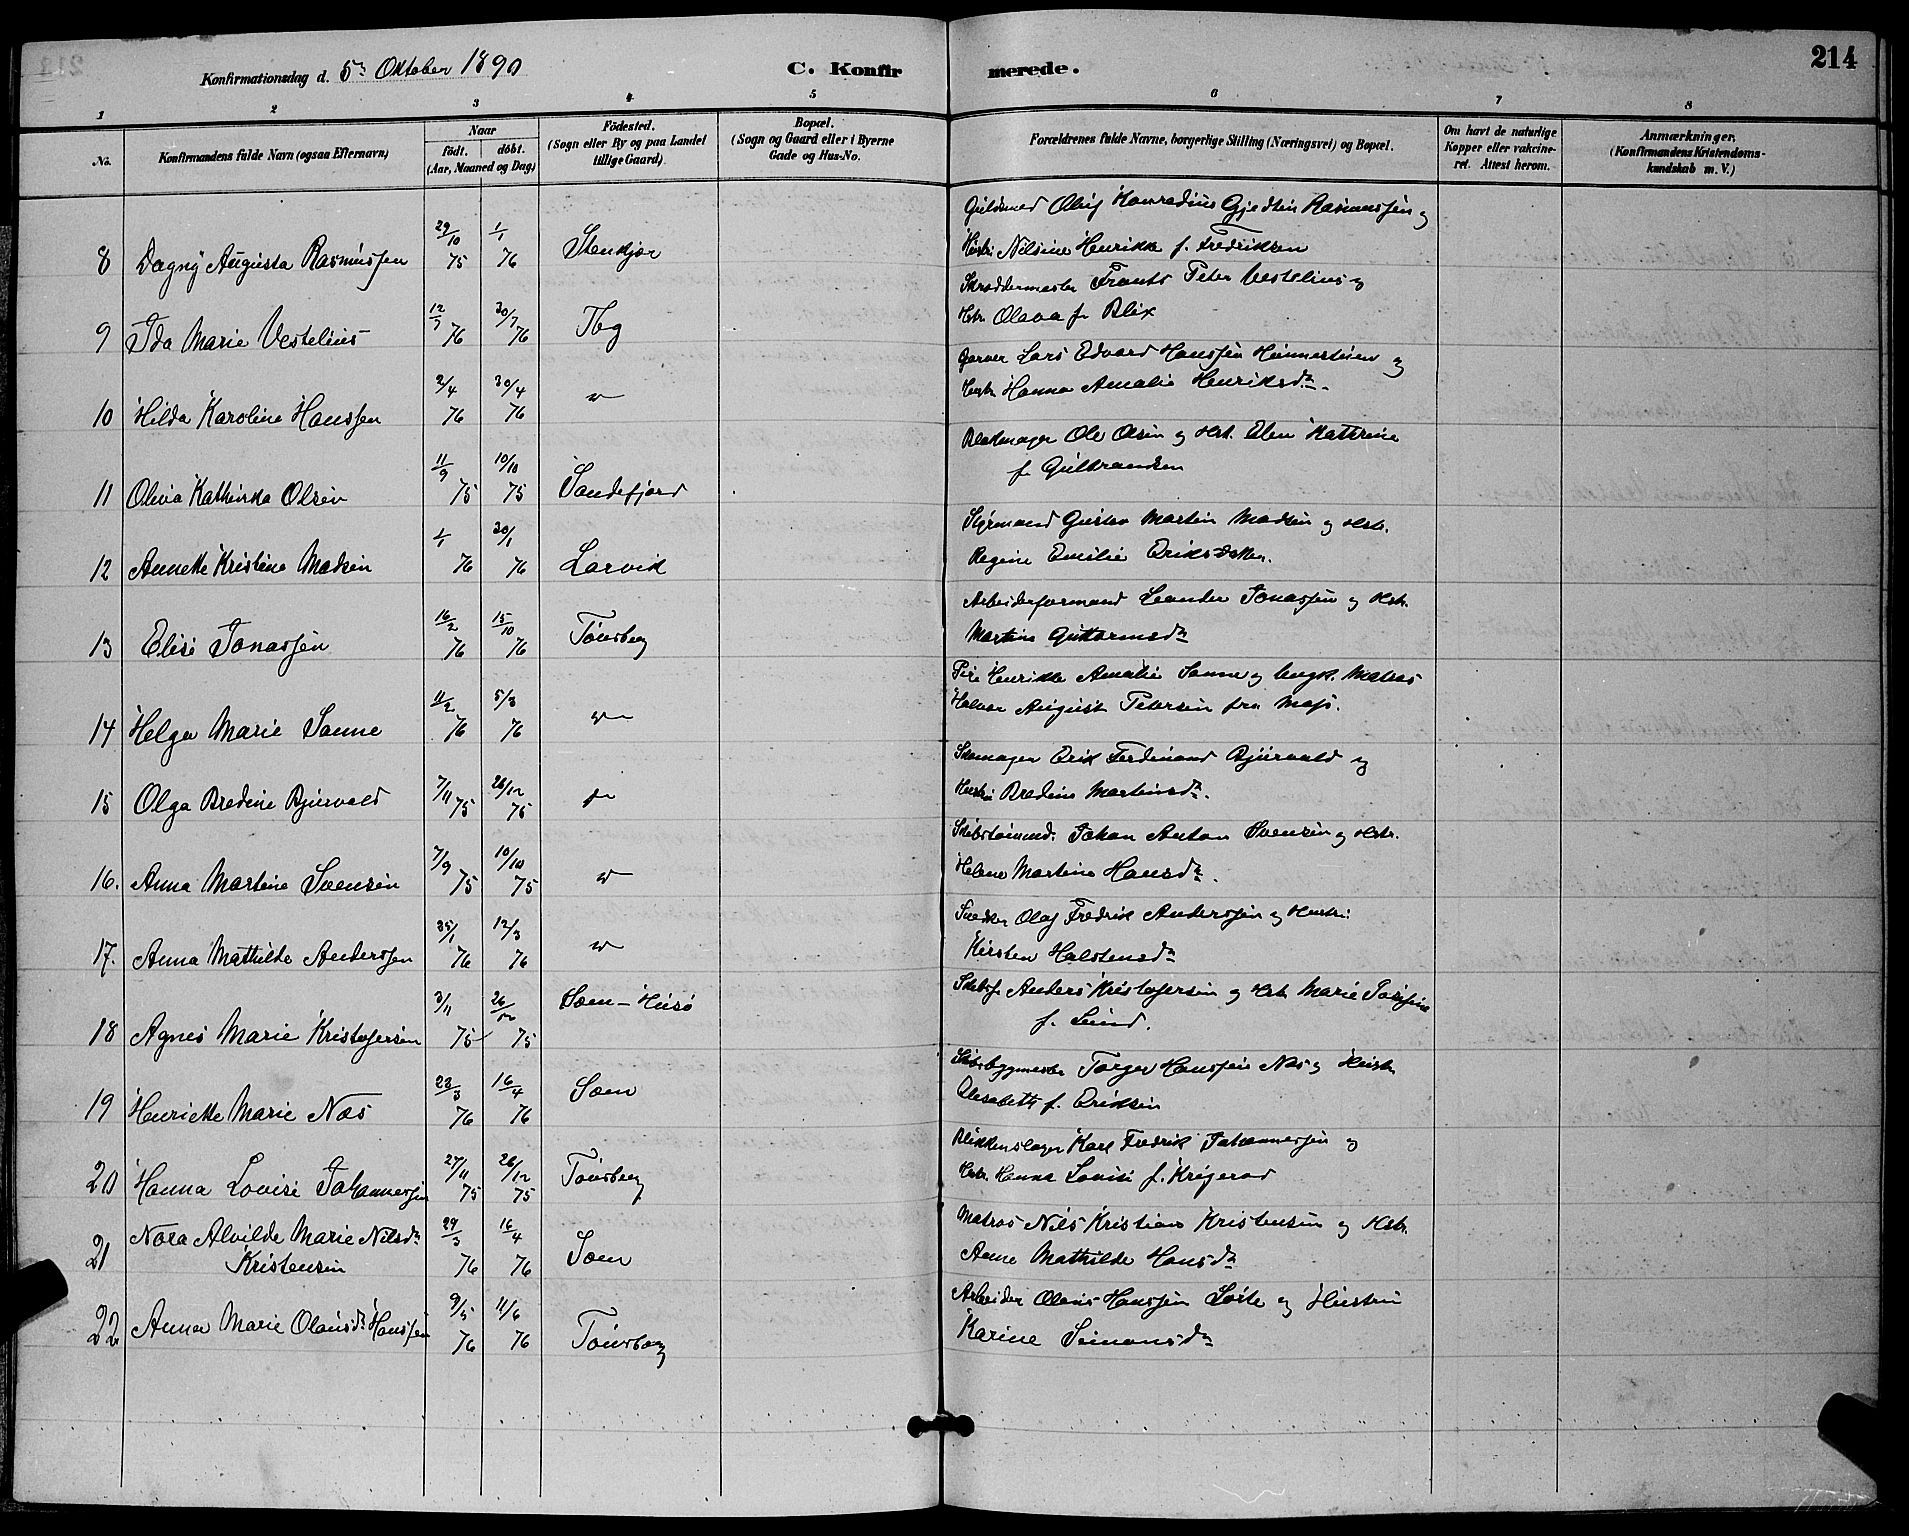 Konfirmationsdag d. 5te Oktober 1890
C. Konfirmerede.
214
1 2 3 4 5 6 7 8
No.
Konfirmandens fulde Navn (ogsaa Efternavn)
Naar
födt. döbt.
(Aar, Maaned og Dag)
Födested.
(Sogn eller By og paa Landet
tillige Gaard)
Bopæl.
(Sogn og Gaard eller i Byerne
Gade og Hus-No.
Forældrenes fulde Navne, borgerlige Stilling (Næringsvei) og Bopæl.
Om havt de naturlige
Kopper eller vakcine-
ret. Attest herom.
Anmærkninger.
(Konfirmandens Kristendoms-
kundskab m. V.)
8 Dagny Augusta Rasmussen 29/10 75 1/1 76 Stenkjær
Guldsmed Oluf Konradius Gjedtin Rasmussen og
Hustr. Nilsine Henrikke f. Fredriksen
9 Ida Marie Vestelius 12/7 76 30/7 76 Tbg
Skræddermester Frants Peter Vestelius og
Hstr. Olava f. Blix
10 Hilda Karoline Hanssen 2/4 76 30/4 76 "
Garver Lars Edvard Hanssen og
Hustr. Hanna Amalie Henriksdr.
11 Olivia Kathinka Olsen 11/9 75 10/10 75 Sandefjord
Blokmager Ole Olsen og Hst. Elen Katrine
f. Gulbrandsen
12 Annette Kristine Madsen 1/1 76 30/1 76 Larvik
Styrmand Gustav Martin Madsen og Hstr.
Regine Emilie Eriksdatter.
13 Elise Jonassen 16/2 76 15/10 76 Tönsberg
Arbeiderformand Leander Jonassen og Hstr.
Martine Guttormsdr
14 Helga Marie Sanne 11/2 76 5/3 76 "
Pige Henrikke Amalie Sanne og Ungk. Matros
Halvor August Petersen fra Moss.
15 Olga Bredine Bjurvald 7/11 75 26/12 75 "
Skomager Erik Ferdinand Bjurvald og
Hustru Bredine Martinsdr.
16. Anna Martine Svensen 7/9 75 10/10 75 "
Skibstömmd. Johan Anton Svensen og Hstr.
Helene Martine Hansdr.
17. Anna Mathilde Anderssen 25/1 76 12/3 76 "
Snedker Olaf Fredrik Anderssen og Hustru
Kirsten Halstensdr
18 Agnes Marie Kristofersen 3/11 75 26/12 75 Sæm-Husö
Skibsf. Anders Kristofersen og Hst. Marie Josefine
f. Lund.
19 Henriette Marie Næs 23/3 76 16/4 76 Sæm
Skibsbygmester Torger Hanssen Næs og Hustr.
Elisabeth f. Eriksen
20 Hanna Lovise Johannessen 27/11 75 26/12 75 Tönsberg
Blikkenslager Karl Fredrik Johannessen og
Hstr. Hanna Lovise f. Krigerod
21 Nora Alvilde Marie Nilsdr 29/3 76 16/4 76 Sæm
Kristensen
Matros Nils Kristian Kristensen og Hstr.
Anne Mathilde Hansdr
22 Anna Marie Olausdr. Hanssen 9/5 76 11/6 76 Tönsberg
Arbeider Olaus Hanssen og Hustru
Karine Simonsdr